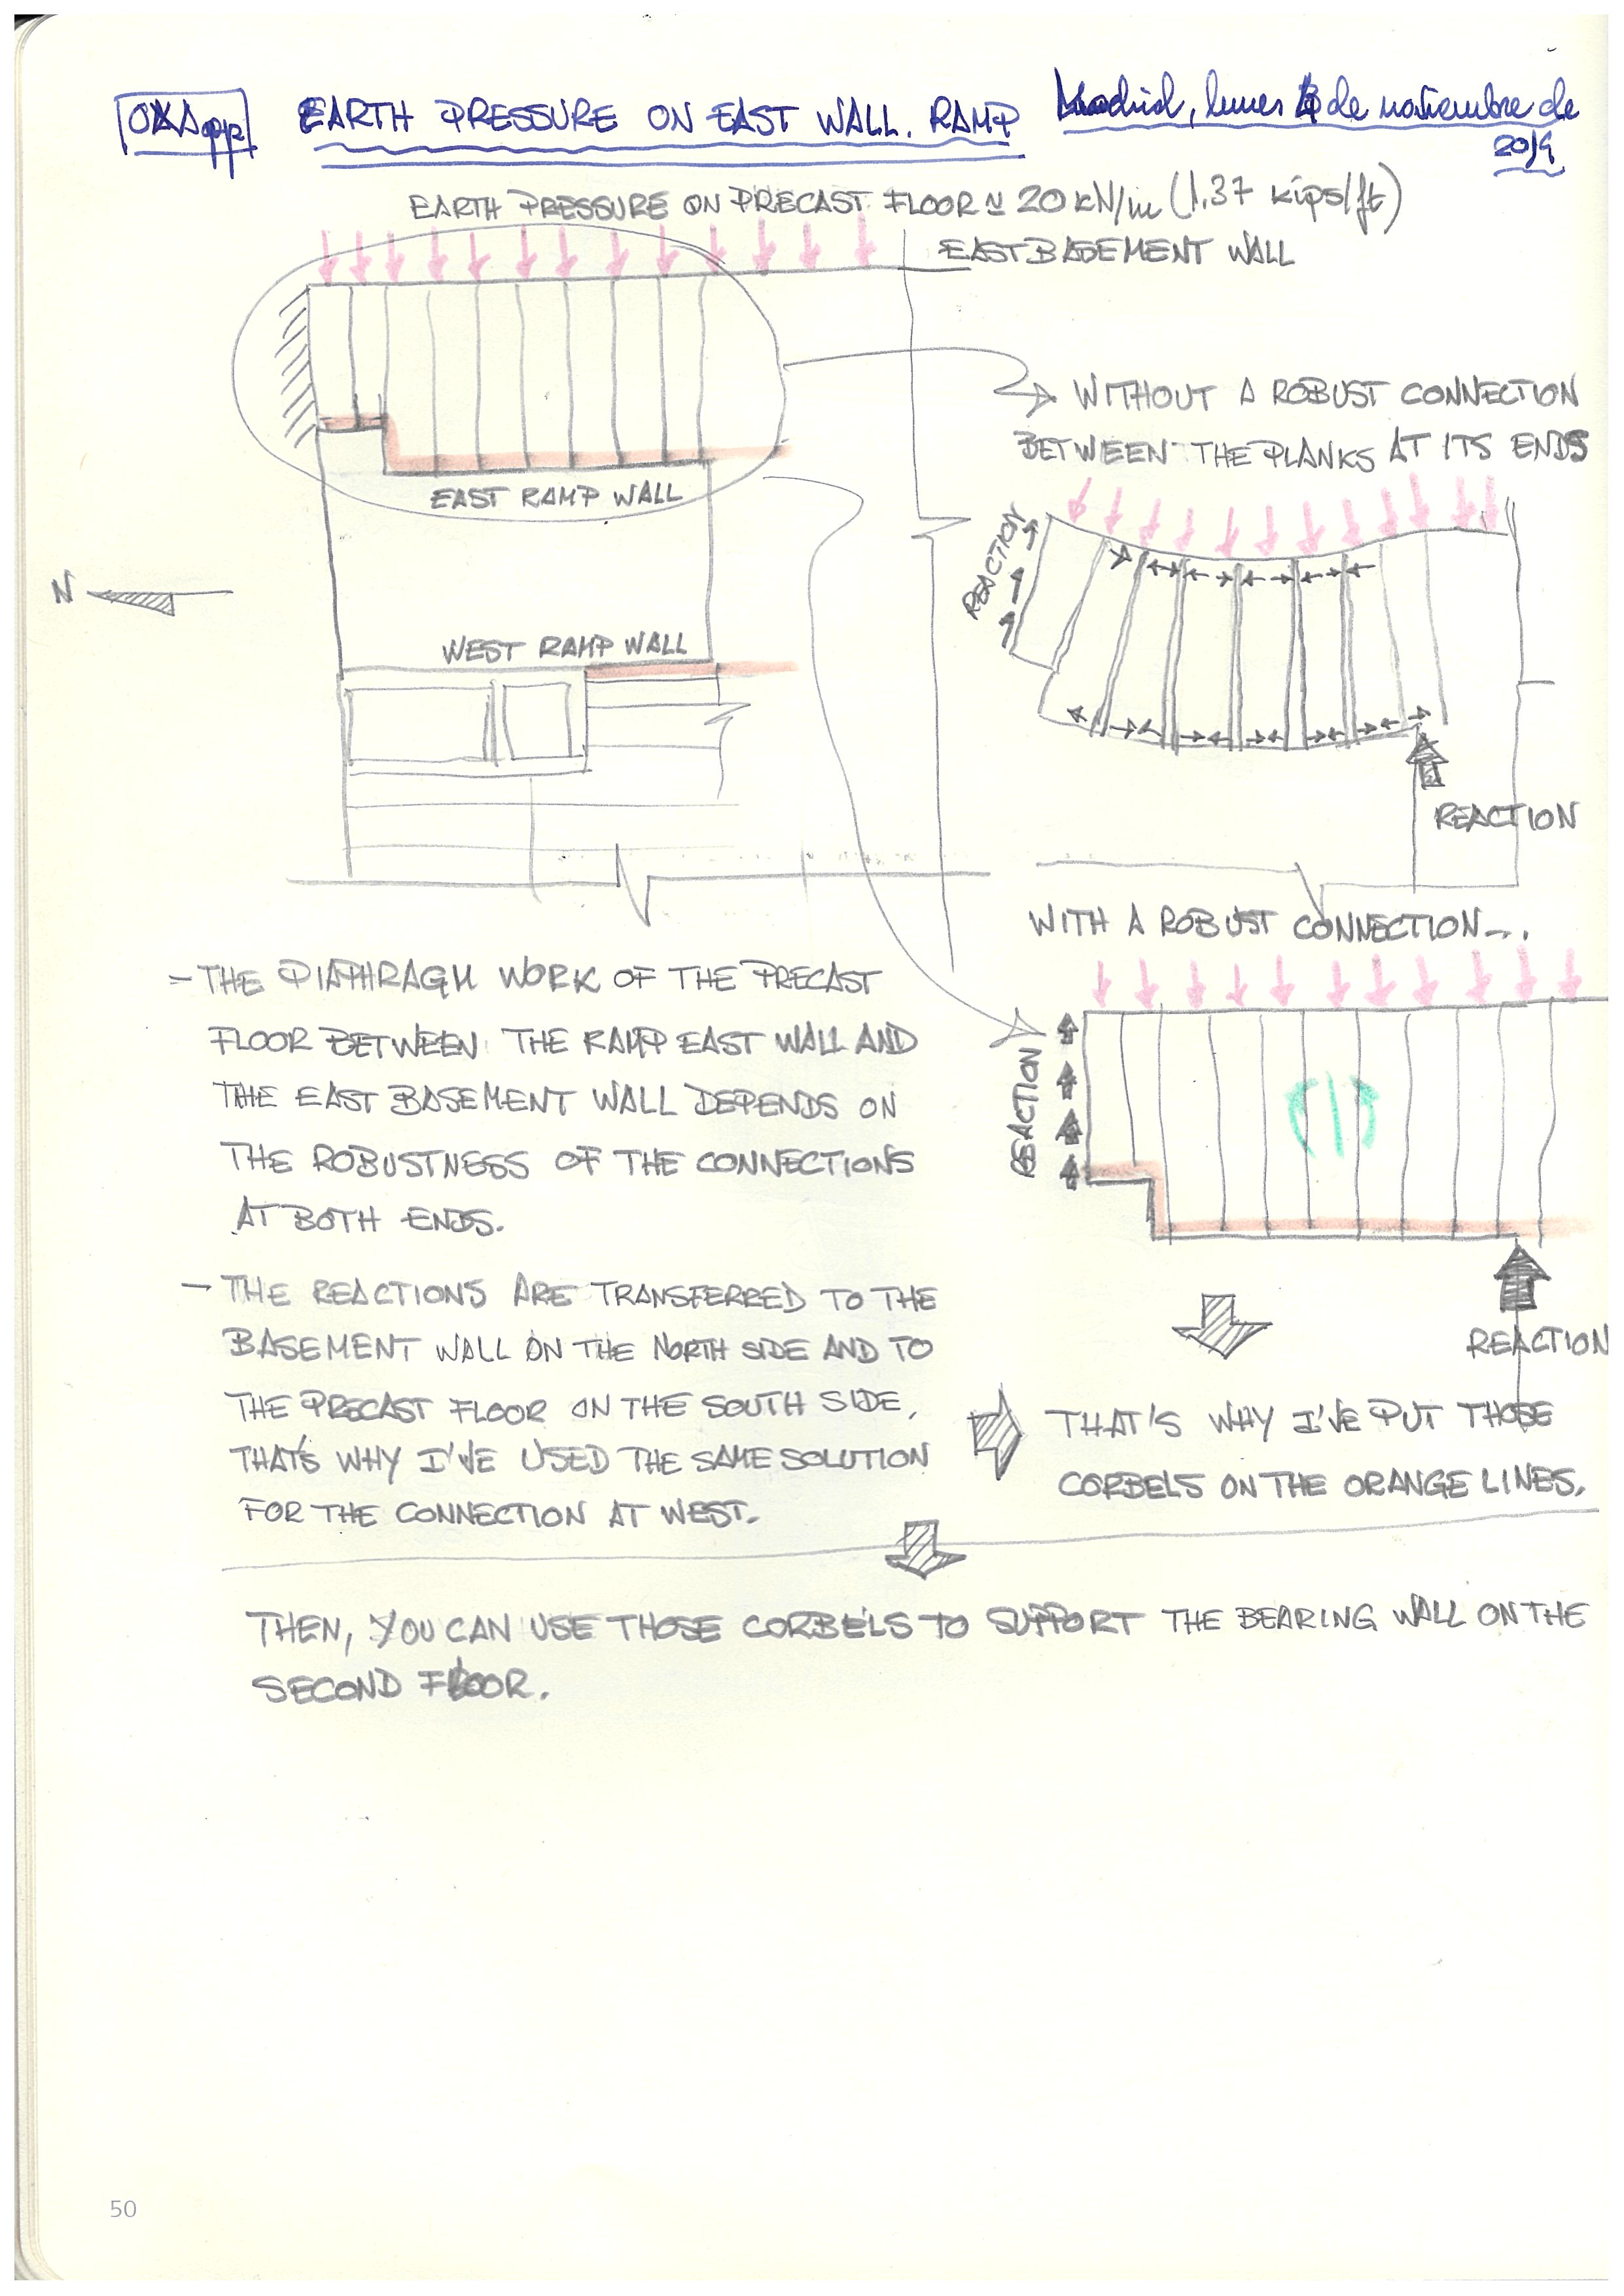 EARTH PRESSURE ON EAST WALL. RAMP
Madrid, lunes 4 de noviembre de
2019
EARTH PRESSURE ON PRECAST FLOOR ≈ 20 kN/m (1,37 kips/ft)
EAST BASEMENT WALL
WITHOUT A ROBUST CONNECTION
BETWEEN THE PLANKS AT ITS ENDS
EAST RAMP WALL
REACTION
N
WEST RAMP WALL
REACTION
WITH A ROBUST CONNECTION...
- THE DIAPHRAGM WORK OF THE PRECAST
FLOOR BETWEEN THE RAMP EAST WALL AND
THE EAST BASEMENT WALL DEPENDS ON
THE ROBUSTNESS OF THE CONNECTIONS
AT BOTH ENDS.
REACTION
- THE REACTIONS ARE TRANSFERRED TO THE
BASEMENT WALL ON THE NORTH SIDE AND TO
THE PRECAST FLOOR ON THE SOUTH SIDE,
THAT'S WHY I'VE USED THE SAME SOLUTION
FOR THE CONNECTION AT WEST.
REACTION
THAT'S WHY I'VE PUT THOSE
CORBELS ON THE ORANGE LINES.
THEN, YOU CAN USE THOSE CORBELS TO SUPPORT THE BEARING WALL ON THE
SECOND FLOOR.
50